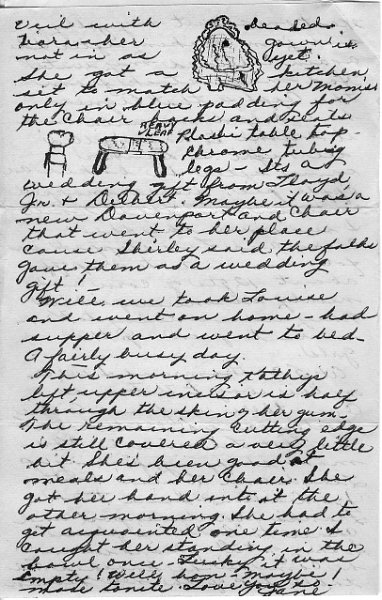 Veil with beaded
tiara. her gown is
not in as yet.
She got a kitchen
set to match her Mom's
only in blue padding for
the chair backs and seats
Plastic table top -
chrome tubing
legs - Its a
wedding gift from Floyd,
Jr. & Delbert. Maybe it was a
new Davenport and Chair
that went to her place
cause Shirley said the folks
gave them as a wedding
gift!
Well we took Louise
and went on home - had
supper and went to bed -
A fairly busy day.
This morning Kathys
left upper incisor is half
through the skin of her gum.
The remaining cutting edge
is still covered a very little
bit. She's been good at
meals and her chair. She
got her hand into it the
other morning. She had to
get acquainted one time I
caught her standing in the
bowl once - Lucky it was
empty! Well hon -
made tonite. Love
Jane